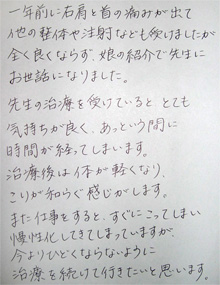 一年前に右肩と首の痛みが出て
他の整体や注射なども受けましたが
全く良くならず、娘の紹介で先生に
お世話になりました。
先生の治療を受けていると とても
気持ちが良く、あっという間に
時間が経ってしまいます。
治療後は体が軽くなり、
こりが和らぐ感じがします。
また仕事をすると、すぐにこってしまい
慢性化してきてしまっていますが、
今よりひどくならないように
治療を続けて行きたいと思います。